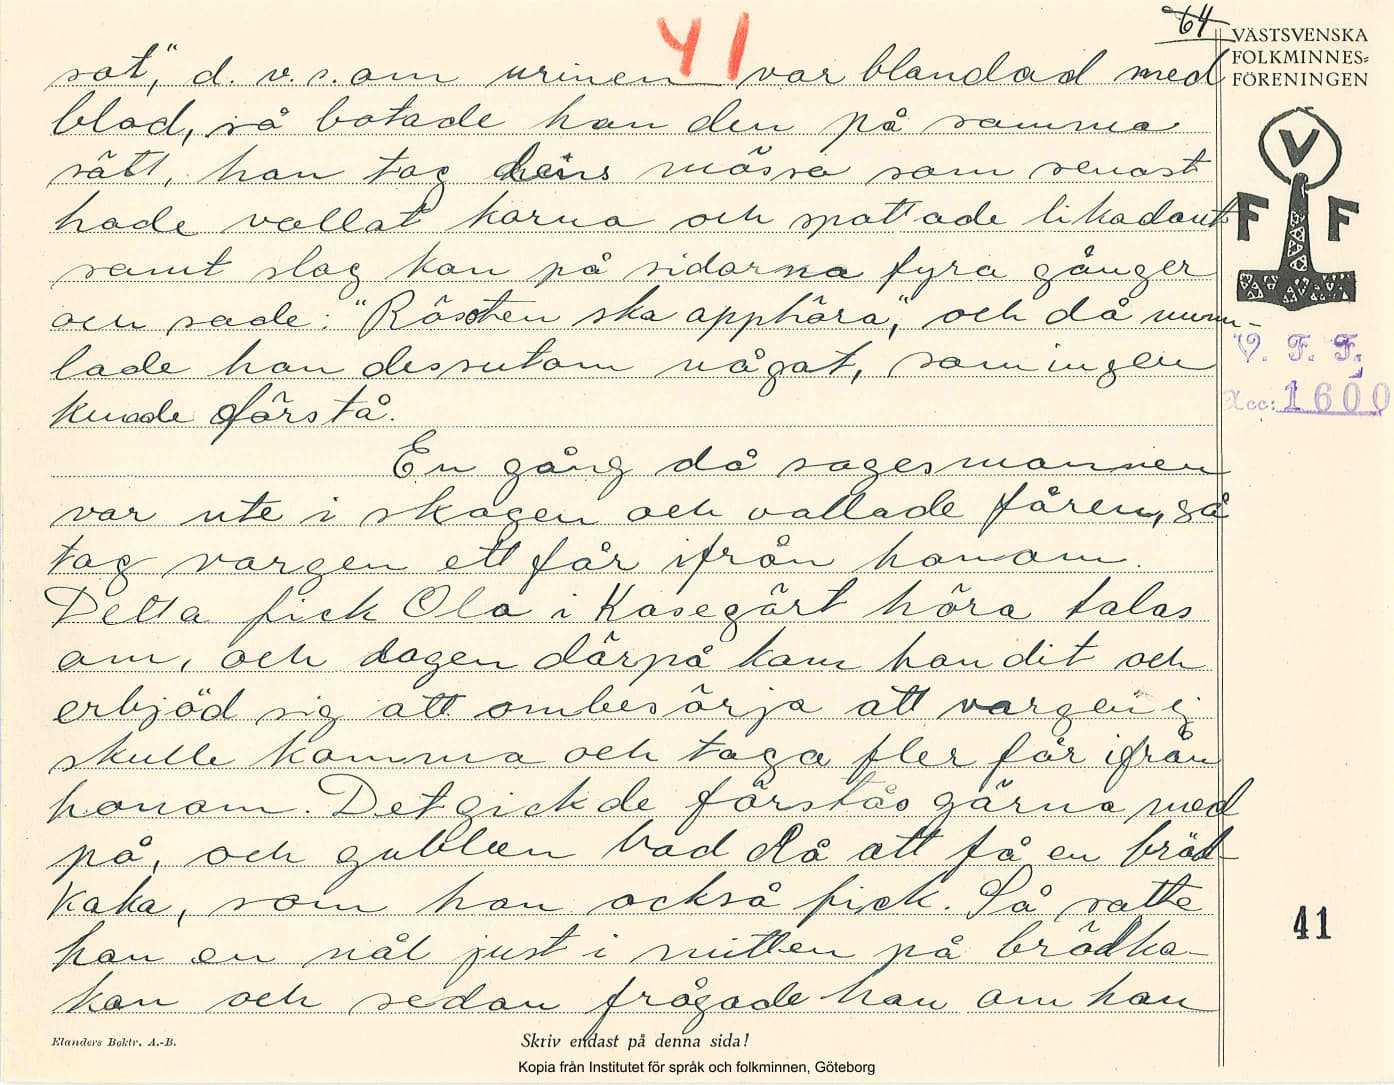 64
41
VÄSTSVENSKA
FOLKMINNES-
FÖRENINGEN
sot", d. v. s. om urinen var blandad med
blod, så botade han den på samma
sätt, han tog dens mössa som senast
hade vallat korna och spottade likadant
samt slog kon på sidorna fyra gånger
och sade: "Rösoten ska apphöra", och då mum-
lade han dessutom något, som ingen
kunde förstå.
En gång då sagesmannen
var ute i skogen och vallade fåren, så
tog vargen ett får ifrån honom.
Detta fick Ola i Kasegärt höra talas
om, och dagen därpå kom han dit och
erbjöd sig att ombesörja att vargen ej
skulle komma och taga fler får ifrån
honom. Det gick de förstås gärna med
på, och gubben bad då att få en bröd-
kaka, som han också fick. Så satte
han en nål just i mitten på brödka-
kan och sedan frågade han om han
V
F F
V. F. F.
Acc: 1600
41
Elanders Boktr. A.-B.
Skriv endast på denna sida!
Kopia från Institutet för språk och folkminnen, Göteborg